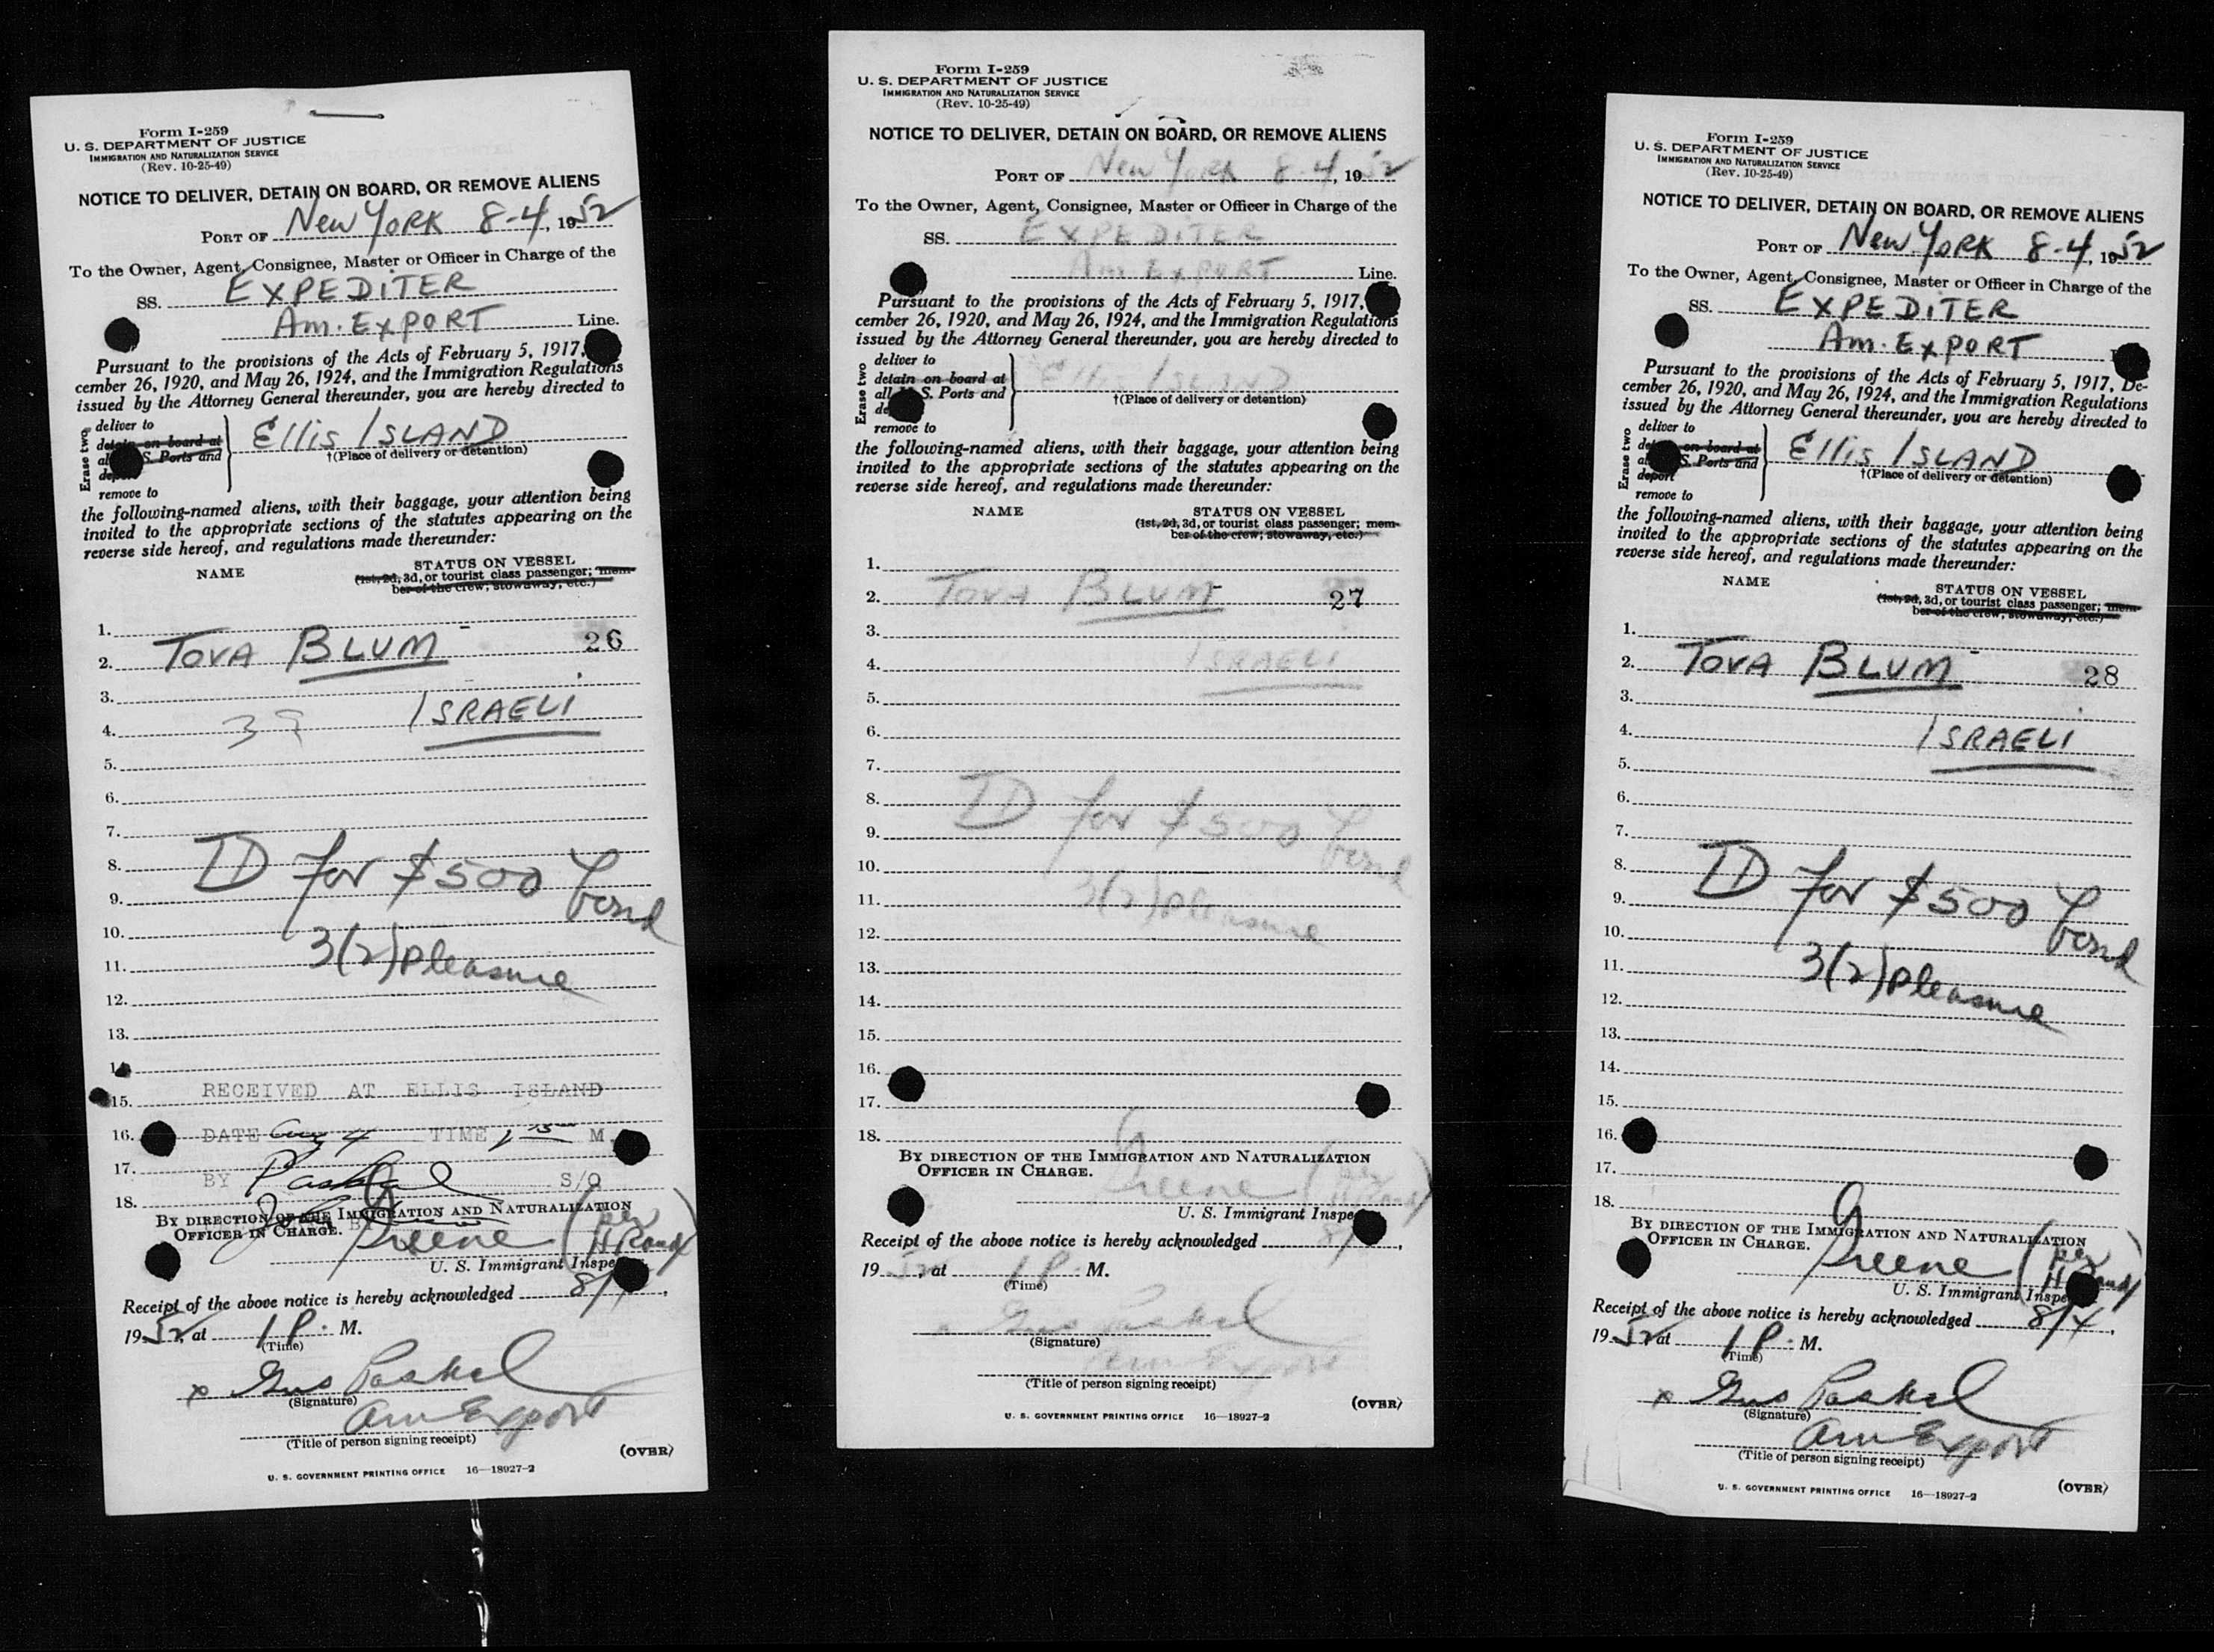 Form I-259
U. S. DEPARTMENT OF JUSTICE
IMMIGRATION AND NATURALIZATION SERVICE
(Rev. 10-25-49)
NOTICE TO DELIVER, DETAIN ON BOARD, OR REMOVE ALIENS
PORT OF New York 8-4, 1952
To the Owner, Agent, Consignee, Master or Officer in Charge of the
SS. EXPEDITER
Am. EXPORT Line.
Pursuant to the provisions of the Acts of February 5, 1917,
cember 26, 1920, and May 26, 1924, and the Immigration Regulations
issued by the Attorney General thereunder, you are hereby directed to
Erase two
deliver to
detain on board at
S. Ports and
deport
remove to
Ellis ISLAND
†(Place of delivery or detention)
the following-named aliens, with their baggage, your attention being
invited to the appropriate sections of the statutes appearing on the
reverse side hereof, and regulations made thereunder:
NAME STATUS ON VESSEL
(1st, 2d, 3d, or tourist class passenger; mem-
ber of the crew; stowaway, etc.)
1.
2. TOVA BLUM 26
3.
4. ISRAELI
5.
6.
7.
8. D for $500
9. bond
10.
11. 3(2) pleasure
12.
13.
14.
15. RECEIVED AT ELLIS ISLAND
16. DATE Aug 4 TIME M.
17. BY Paskal S/O
18.
BY DIRECTION OF THE IMMIGRATION AND NATURALIZATION
OFFICER IN CHARGE.
Greene (per
U. S. Immigrant Inspe
Receipt of the above notice is hereby acknowledged 8/4,
1952, at 1 P. M.
(Time)
x Gus Paskal
(Signature)
Am Export
(Title of person signing receipt)
(OVER)
U. S. GOVERNMENT PRINTING OFFICE 16—18927-2
Form I-259
U. S. DEPARTMENT OF JUSTICE
IMMIGRATION AND NATURALIZATION SERVICE
(Rev. 10-25-49)
NOTICE TO DELIVER, DETAIN ON BOARD, OR REMOVE ALIENS
PORT OF New York 8-4, 1952
To the Owner, Agent, Consignee, Master or Officer in Charge of the
SS. EXPEDITER
Am. EXPORT Line.
Pursuant to the provisions of the Acts of February 5, 1917,
cember 26, 1920, and May 26, 1924, and the Immigration Regulations
issued by the Attorney General thereunder, you are hereby directed to
Erase two
deliver to
detain on board at
all S. Ports and
remove to
Ellis ISLAND
†(Place of delivery or detention)
the following-named aliens, with their baggage, your attention being
invited to the appropriate sections of the statutes appearing on the
reverse side hereof, and regulations made thereunder:
NAME STATUS ON VESSEL
(1st, 2d, 3d, or tourist class passenger; mem-
ber of the crew; stowaway, etc.)
1.
2. TOVA BLUM 27
3.
4. ISRAELI
5.
6.
7.
8. D for $500
9. bond
10.
11. 3(2) pleasure
12.
13.
14.
15.
16.
17.
18.
BY DIRECTION OF THE IMMIGRATION AND NATURALIZATION
OFFICER IN CHARGE.
Greene (per
U. S. Immigrant Inspe
Receipt of the above notice is hereby acknowledged 8/
1952, at 1 P. M.
(Time)
x Gus Paskal
(Signature)
Am Export
(Title of person signing receipt)
(OVER)
U. S. GOVERNMENT PRINTING OFFICE 16—18927-2
Form I-259
U. S. DEPARTMENT OF JUSTICE
IMMIGRATION AND NATURALIZATION SERVICE
(Rev. 10-25-49)
NOTICE TO DELIVER, DETAIN ON BOARD, OR REMOVE ALIENS
PORT OF New York 8-4, 1952
To the Owner, Agent, Consignee, Master or Officer in Charge of the
SS. EXPEDITER
Am. EXPORT
Pursuant to the provisions of the Acts of February 5, 1917, De-
cember 26, 1920, and May 26, 1924, and the Immigration Regulations
issued by the Attorney General thereunder, you are hereby directed to
Erase two
deliver to
on board at
S. Ports and
deport
remove to
Ellis ISLAND
†(Place of delivery or detention)
the following-named aliens, with their baggage, your attention being
invited to the appropriate sections of the statutes appearing on the
reverse side hereof, and regulations made thereunder:
NAME STATUS ON VESSEL
(1st, 2d, 3d, or tourist class passenger; mem-
ber of the crew; stowaway, etc.)
1.
2. TOVA BLUM 28
3.
4. ISRAELI
5.
6.
7.
8. D for $500
9. bond
10.
11. 3(2) pleasure
12.
13.
14.
15.
16.
17.
18.
BY DIRECTION OF THE IMMIGRATION AND NATURALIZATION
OFFICER IN CHARGE.
Greene (per
U. S. Immigrant Inspe
Receipt of the above notice is hereby acknowledged 8/4,
1952 at 1 P. M.
(Time)
x Gus Paskal
(Signature)
Am Export
(Title of person signing receipt)
(OVER)
U. S. GOVERNMENT PRINTING OFFICE 16—18927-2